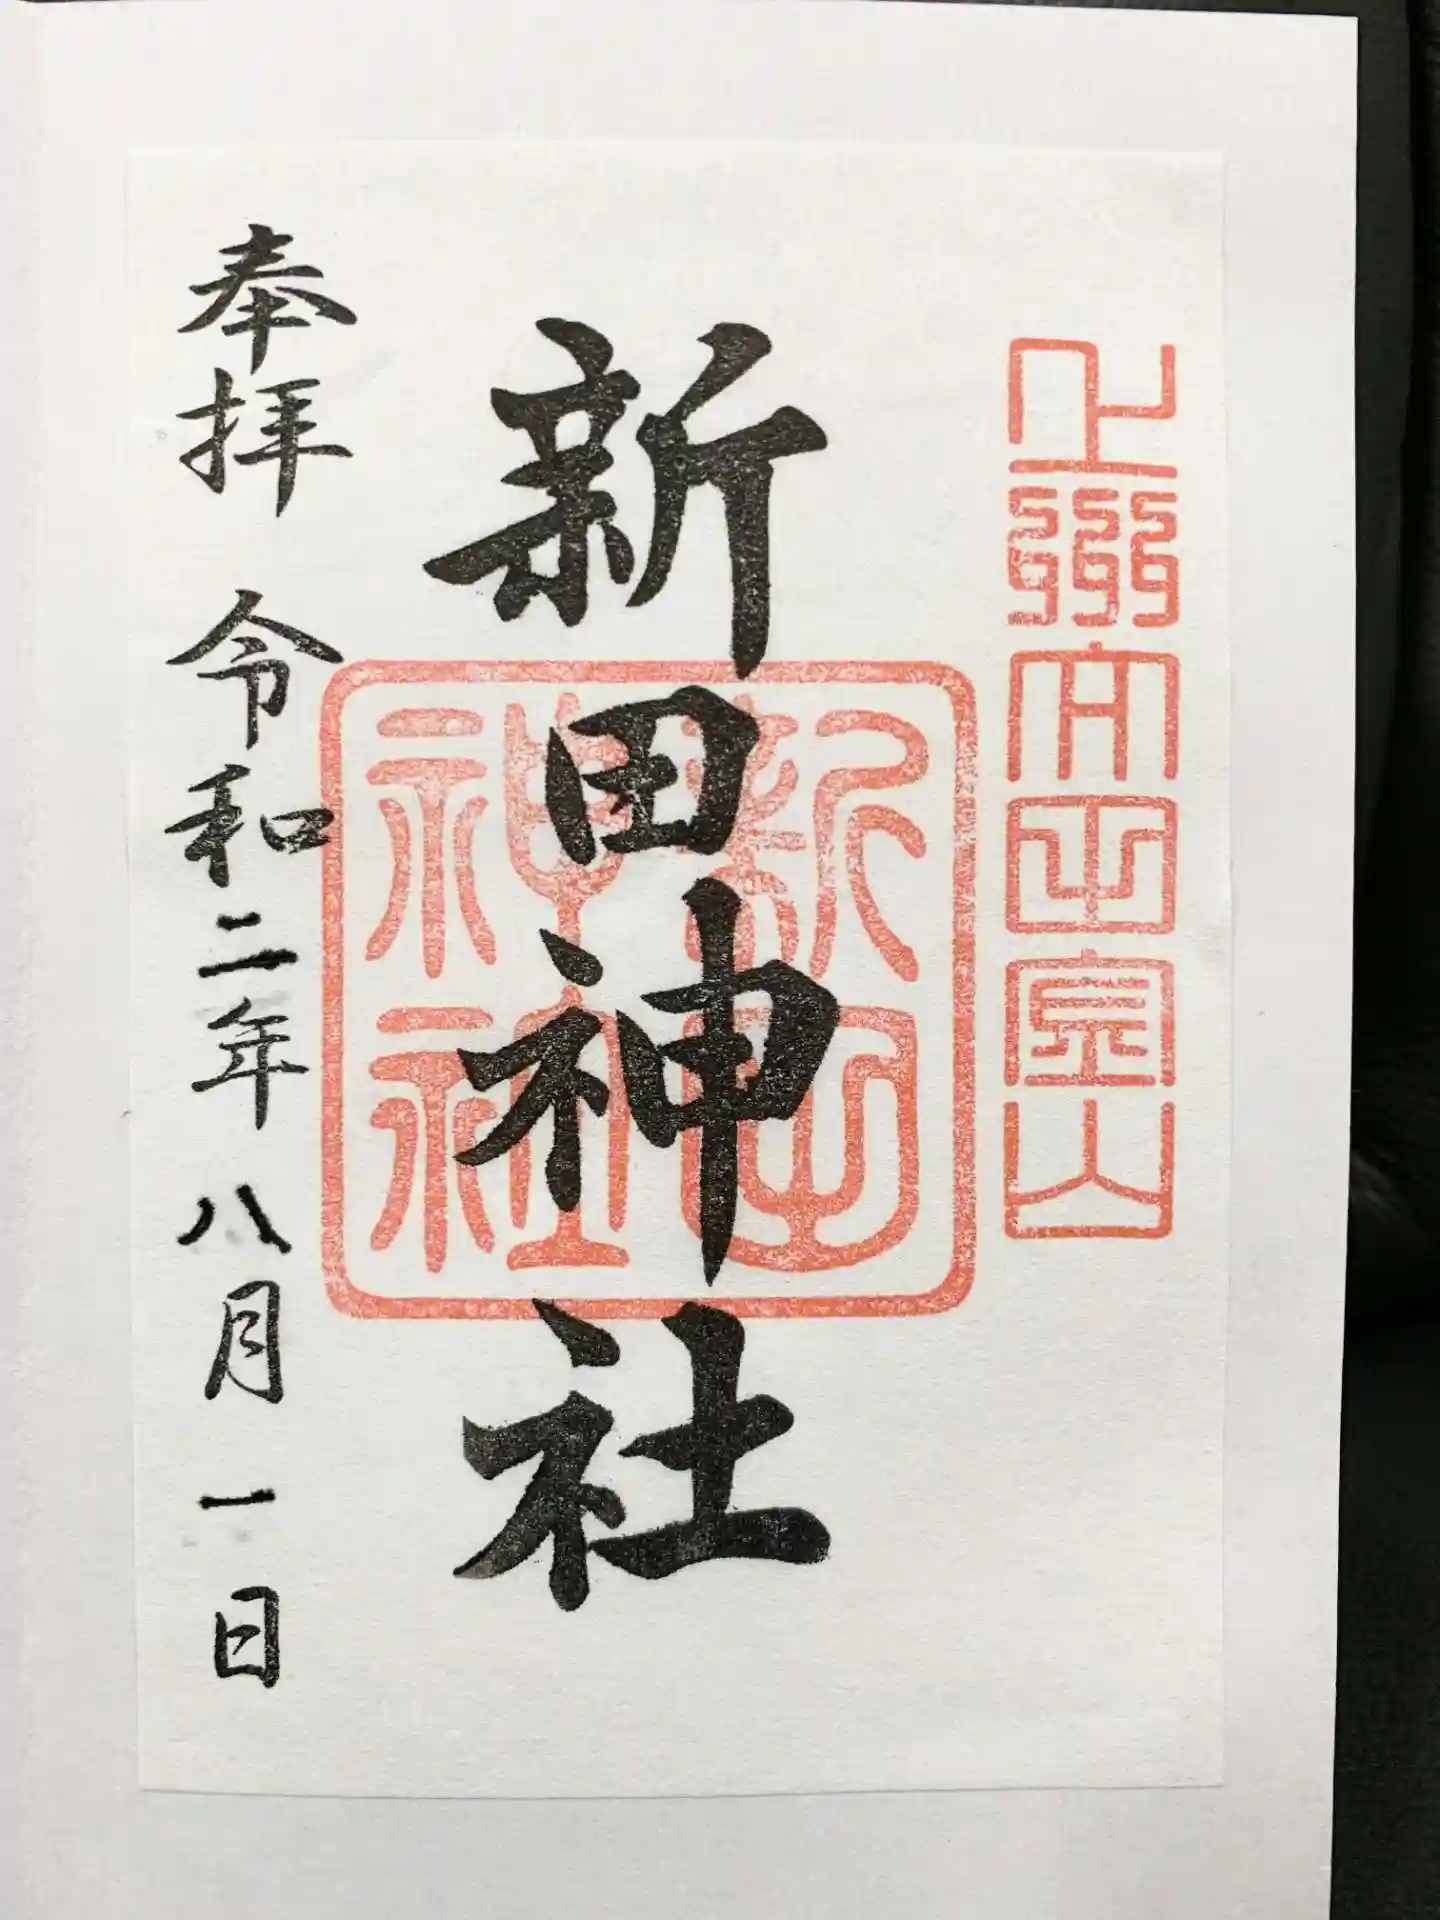 上州太田金山
新田神社
新田
神社
奉拝 令和二年 八月 一日